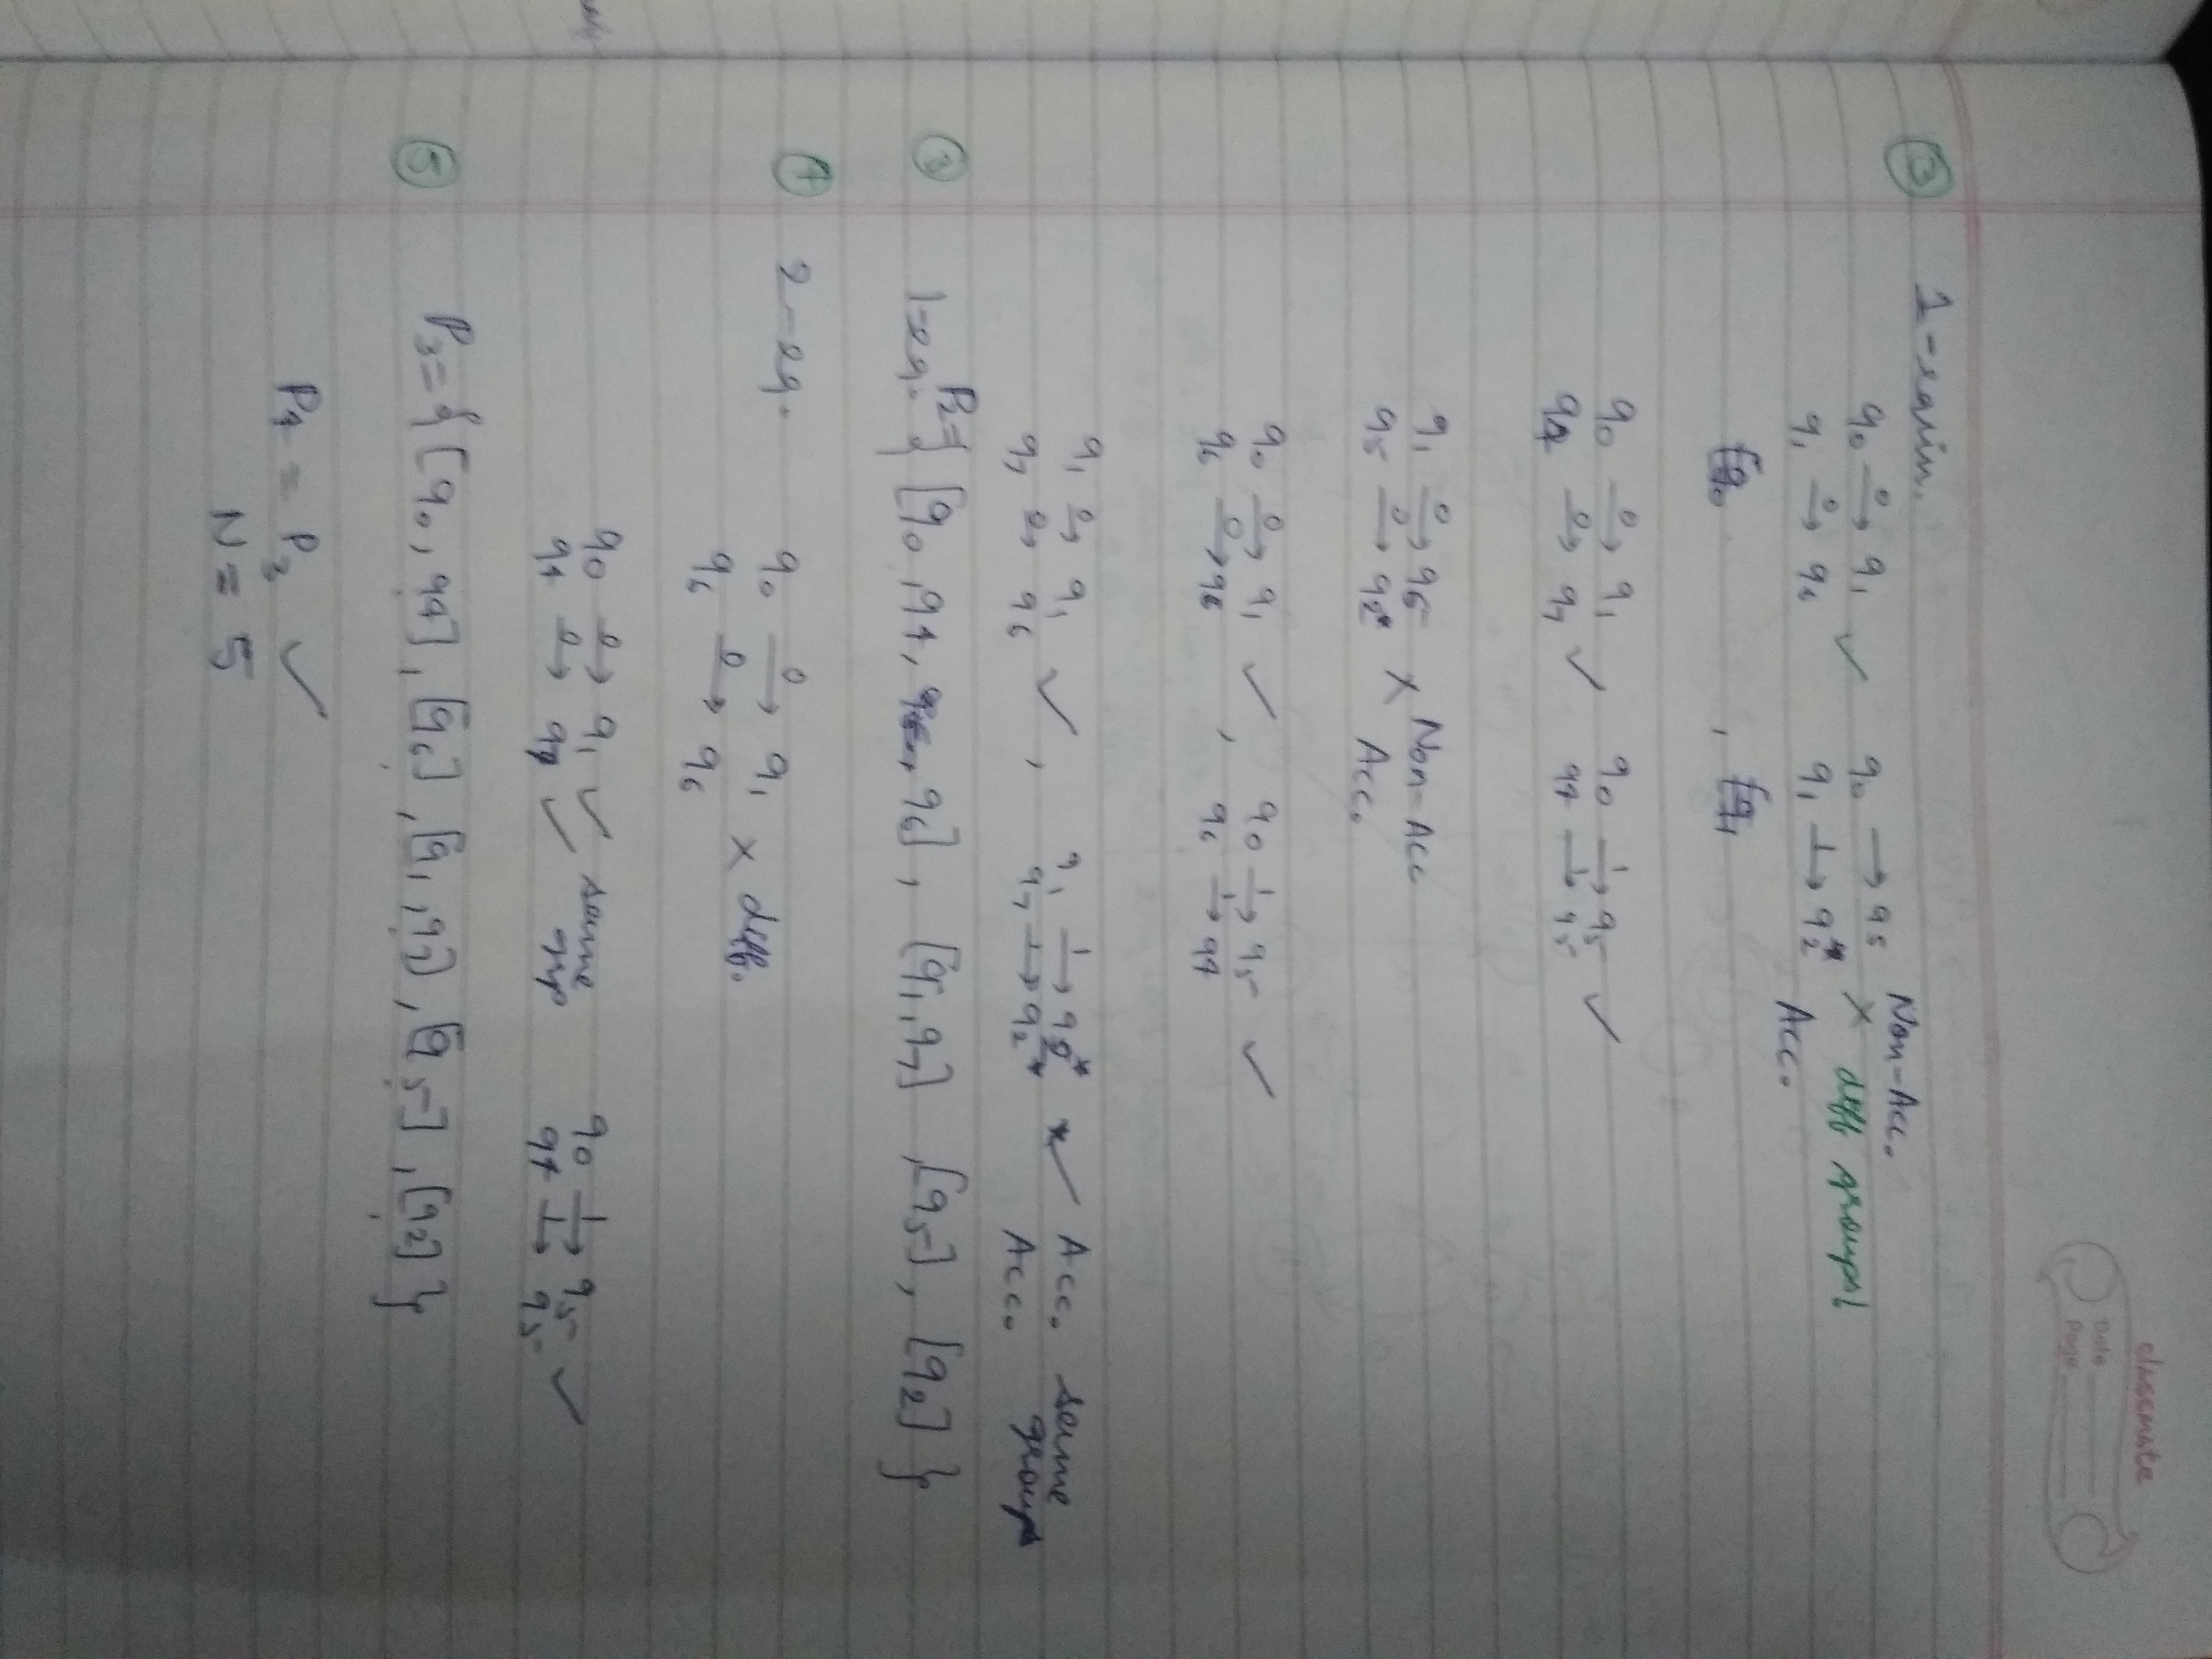 classmate
Date
Page
③ 1-equiv.
q0 —0→ q1 ✓ q0 → q5 Non-Acc.
q1 —0→ q6 q1 —1→ q2* × diff groups!
Acc.
,
q0 —0→ q1 q0 —1→ q5 ✓
q4 —0→ q7 ✓ q4 —1→ q5
q1 —0→ q6 × Non-Acc
q5 —0→ q2* Acc.
q0 —0→ q1 ✓ q0 —1→ q5 ✓
q6 —0→ q6 , q6 —1→ q4
q1 —0→ q1 ✓ q1 —1→ q2* ✓ Acc. same
q7 —0→ q6 , q7 —1→ q2* Acc. groups
③ 1-eq. P2= { [q0, q4, q6], [q1, q7], [q5], [q2] }
④ 2-eq. q0 —0→ q1 × diff.
q6 —0→ q6
q0 —0→ q1 ✓ same q0 —1→ q5 ✓
q4 —0→ q7 ✓ grp q4 —1→ q5
⑤ P3 = { [q0, q4], [q6], [q1, q7], [q5], [q2] }
P4 = P3 ✓
N = 5